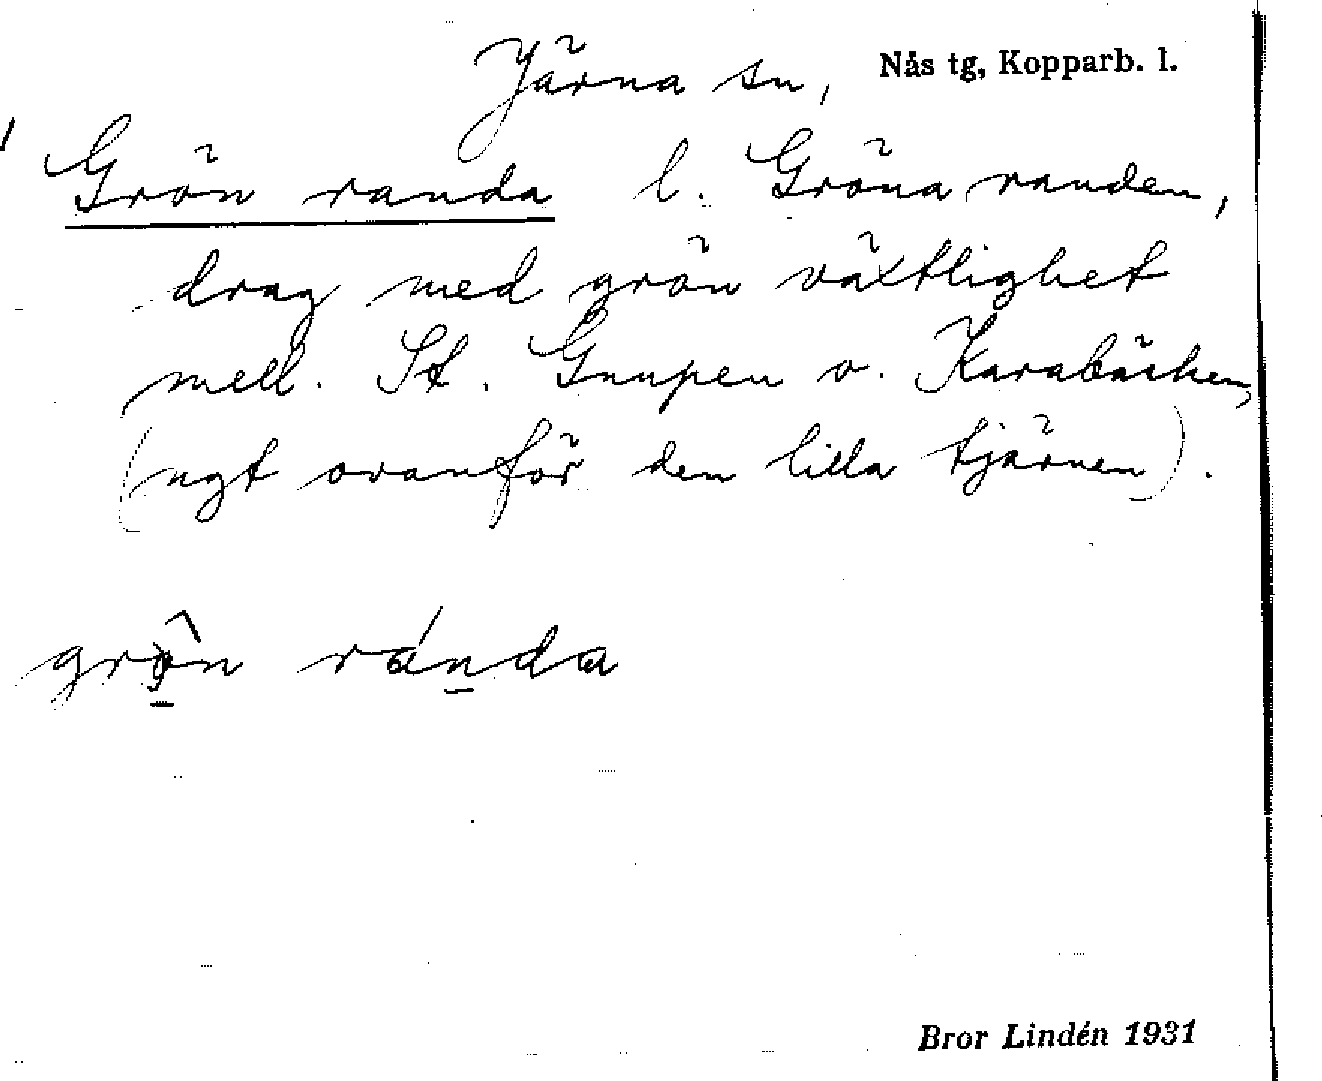 Järna sn, Nås tg, Kopparb. l.
Grön randa l. Gröna randen,
drag med grön växtlighet
mell. St. Gnupen o. Karabäcken,
(ngt ovanför den lilla tjärnen).
grö̂n ránda
Bror Lindén 1931